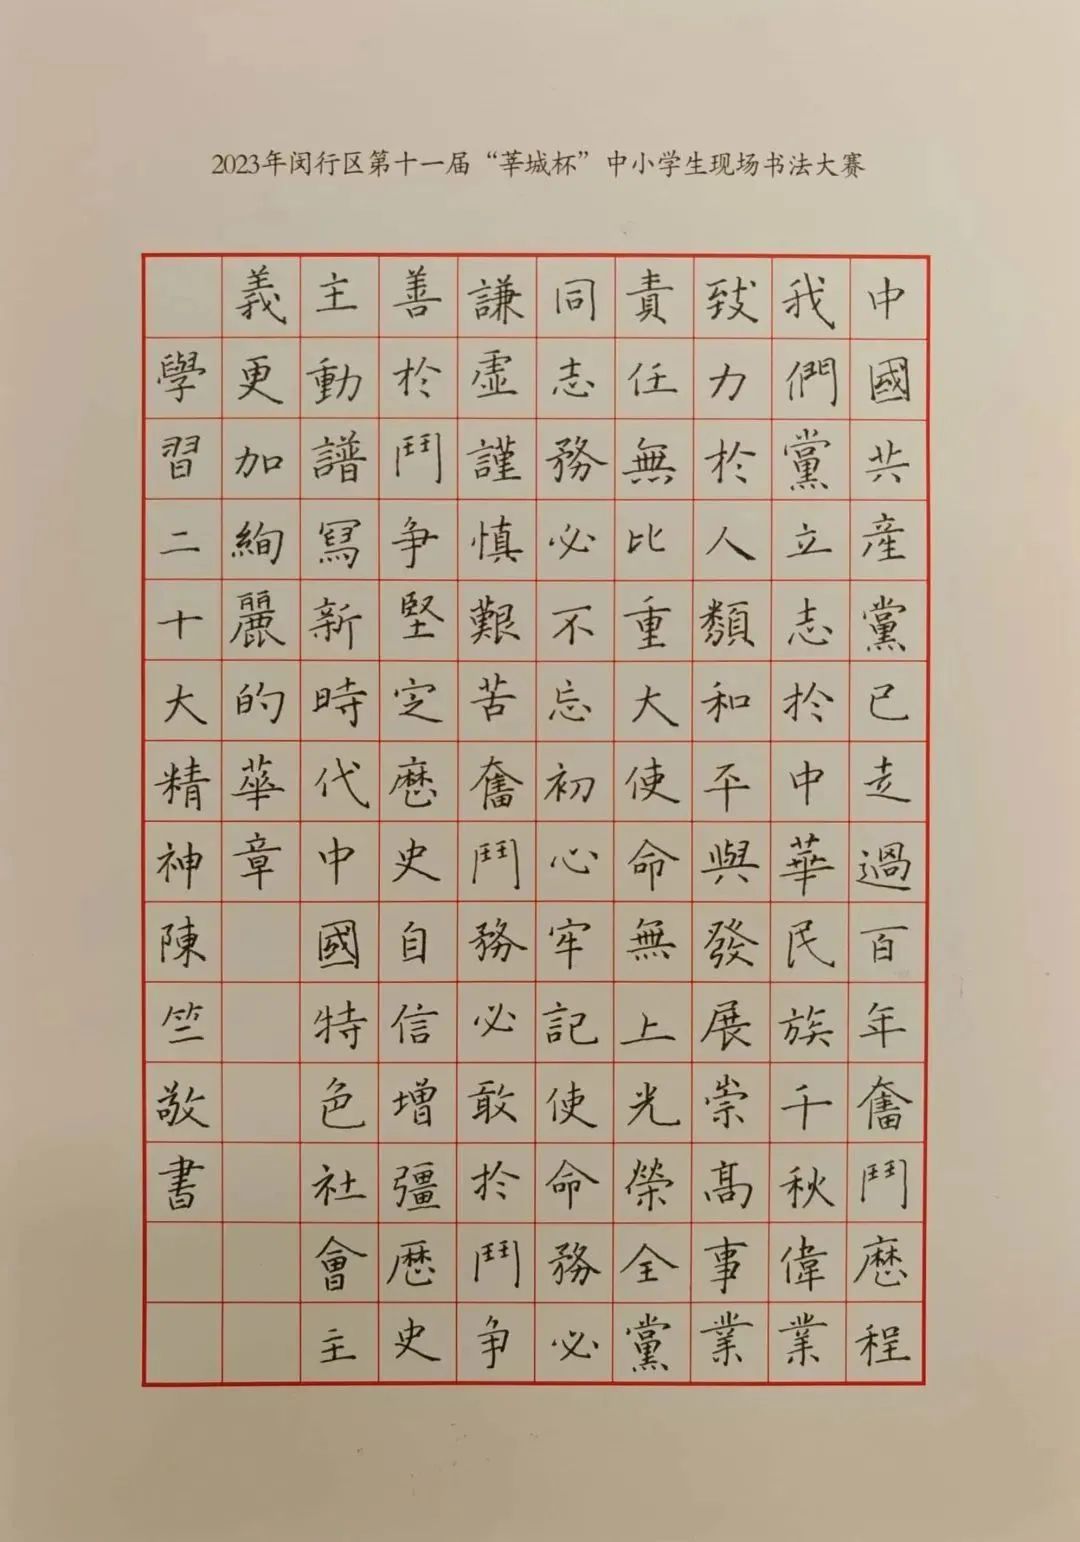 2023年闵行区第十一届“莘城杯”中小学生现场书法大赛
中國共産黨已走過百年奮鬥歷程
我們黨立志於中華民族千秋偉業
致力於人類和平與發展崇高事業
責任無比重大使命無上光榮全黨
同志務必不忘初心牢記使命務必
謙虛謹慎艱苦奮鬥務必敢於鬥争
善於鬥争堅定歷史自信增彊歷史
主動譜寫新時代中國特色社會主
義更加絢麗的華章
學習二十大精神陳竺敬書